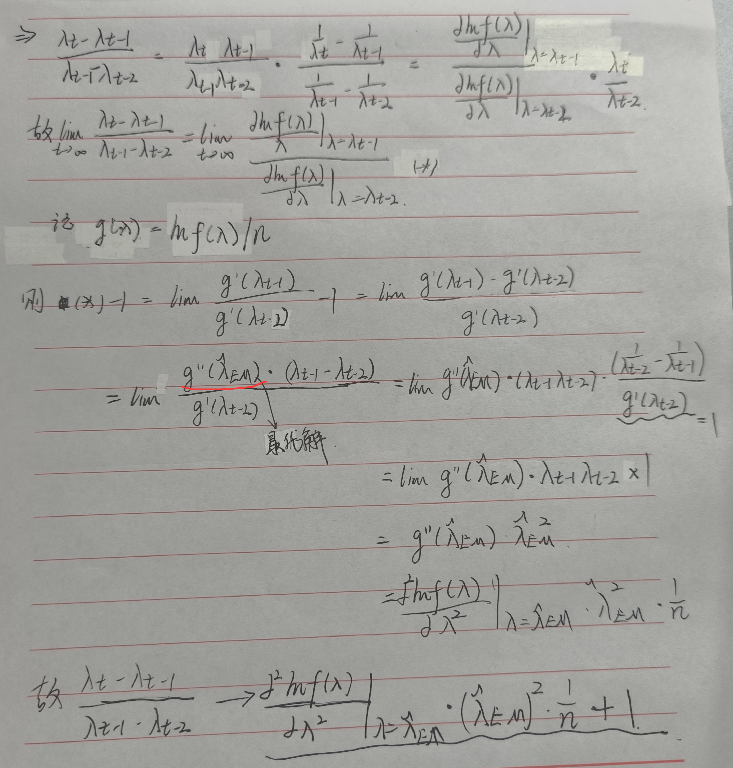 ⇒ (λt - λt-1)/(λt-1 - λt-2) = (λt λt-1)/(λt-1 λt-2) · (1/λt - 1/λt-1)/(1/λt-1 - 1/λt-2) = (∂lnf(λ)/∂λ |λ=λt-1)/(∂lnf(λ)/∂λ |λ=λt-2) · λt/λt-2.
故 lim t→∞ (λt - λt-1)/(λt-1 - λt-2) = lim t→∞ (∂lnf(λ)/λ |λ=λt-1)/(∂lnf(λ)/∂λ |λ=λt-2.) (*)
记 g(λ) = lnf(λ)/n
则 (*) -1 = lim g'(λt-1)/g'(λt-2) - 1 = lim (g'(λt-1) - g'(λt-2))/g'(λt-2)
= lim (g''(λ̂EM) · (λt-1 - λt-2))/g'(λt-2) = lim g''(λ̂EM) · (λt-1 λt-2) · (1/λt-2 - 1/λt-1)/g'(λt-2) = 1
最终解
= lim g''(λ̂EM) · λt-1 λt-2 × 1
= g''(λ̂EM) · λ̂²EM
= ∂²lnf(λ)/∂λ² |λ=λ̂EM · λ̂²EM · 1/n
故 (λt - λt-1)/(λt-1 - λt-2) → ∂²lnf(λ)/∂λ² |λ=λ̂EM · (λ̂EM)² · 1/n + 1